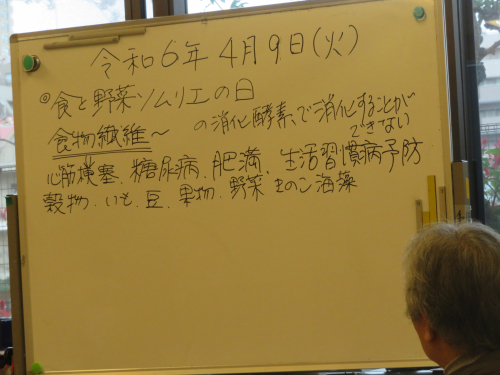 令和6年4月9日(火)
◎食と野菜ソムリエの日
食物繊維〜 の消化酵素、で消化することが
できない
心筋梗塞、糖尿病、肥満、生活習慣病予防
穀物、いも、豆、果物、野菜 きのこ海藻